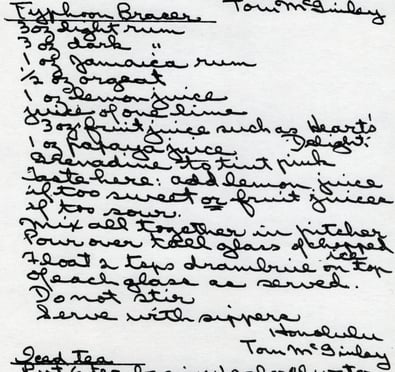 Typhoon Bracer    Tom McGinley
3 oz light rum
3 oz dark "
1 oz Jamaica rum
1/2 oz orgeat
1 oz lemon juice
juice of one lime
3 oz fruit juice such as Heart's
1 oz papaya juice    Delight.
Grenadine to tint pink
Taste here: add lemon juice
if too sweet or fruit juices
if too sour.
Mix all together in pitcher
Pour over tall glass of chopped
ice
Float 2 tsps drambuie on top
of each glass as served.
Do not stir
Serve with sippers
Honolulu
Tom McGinley
Iced tea